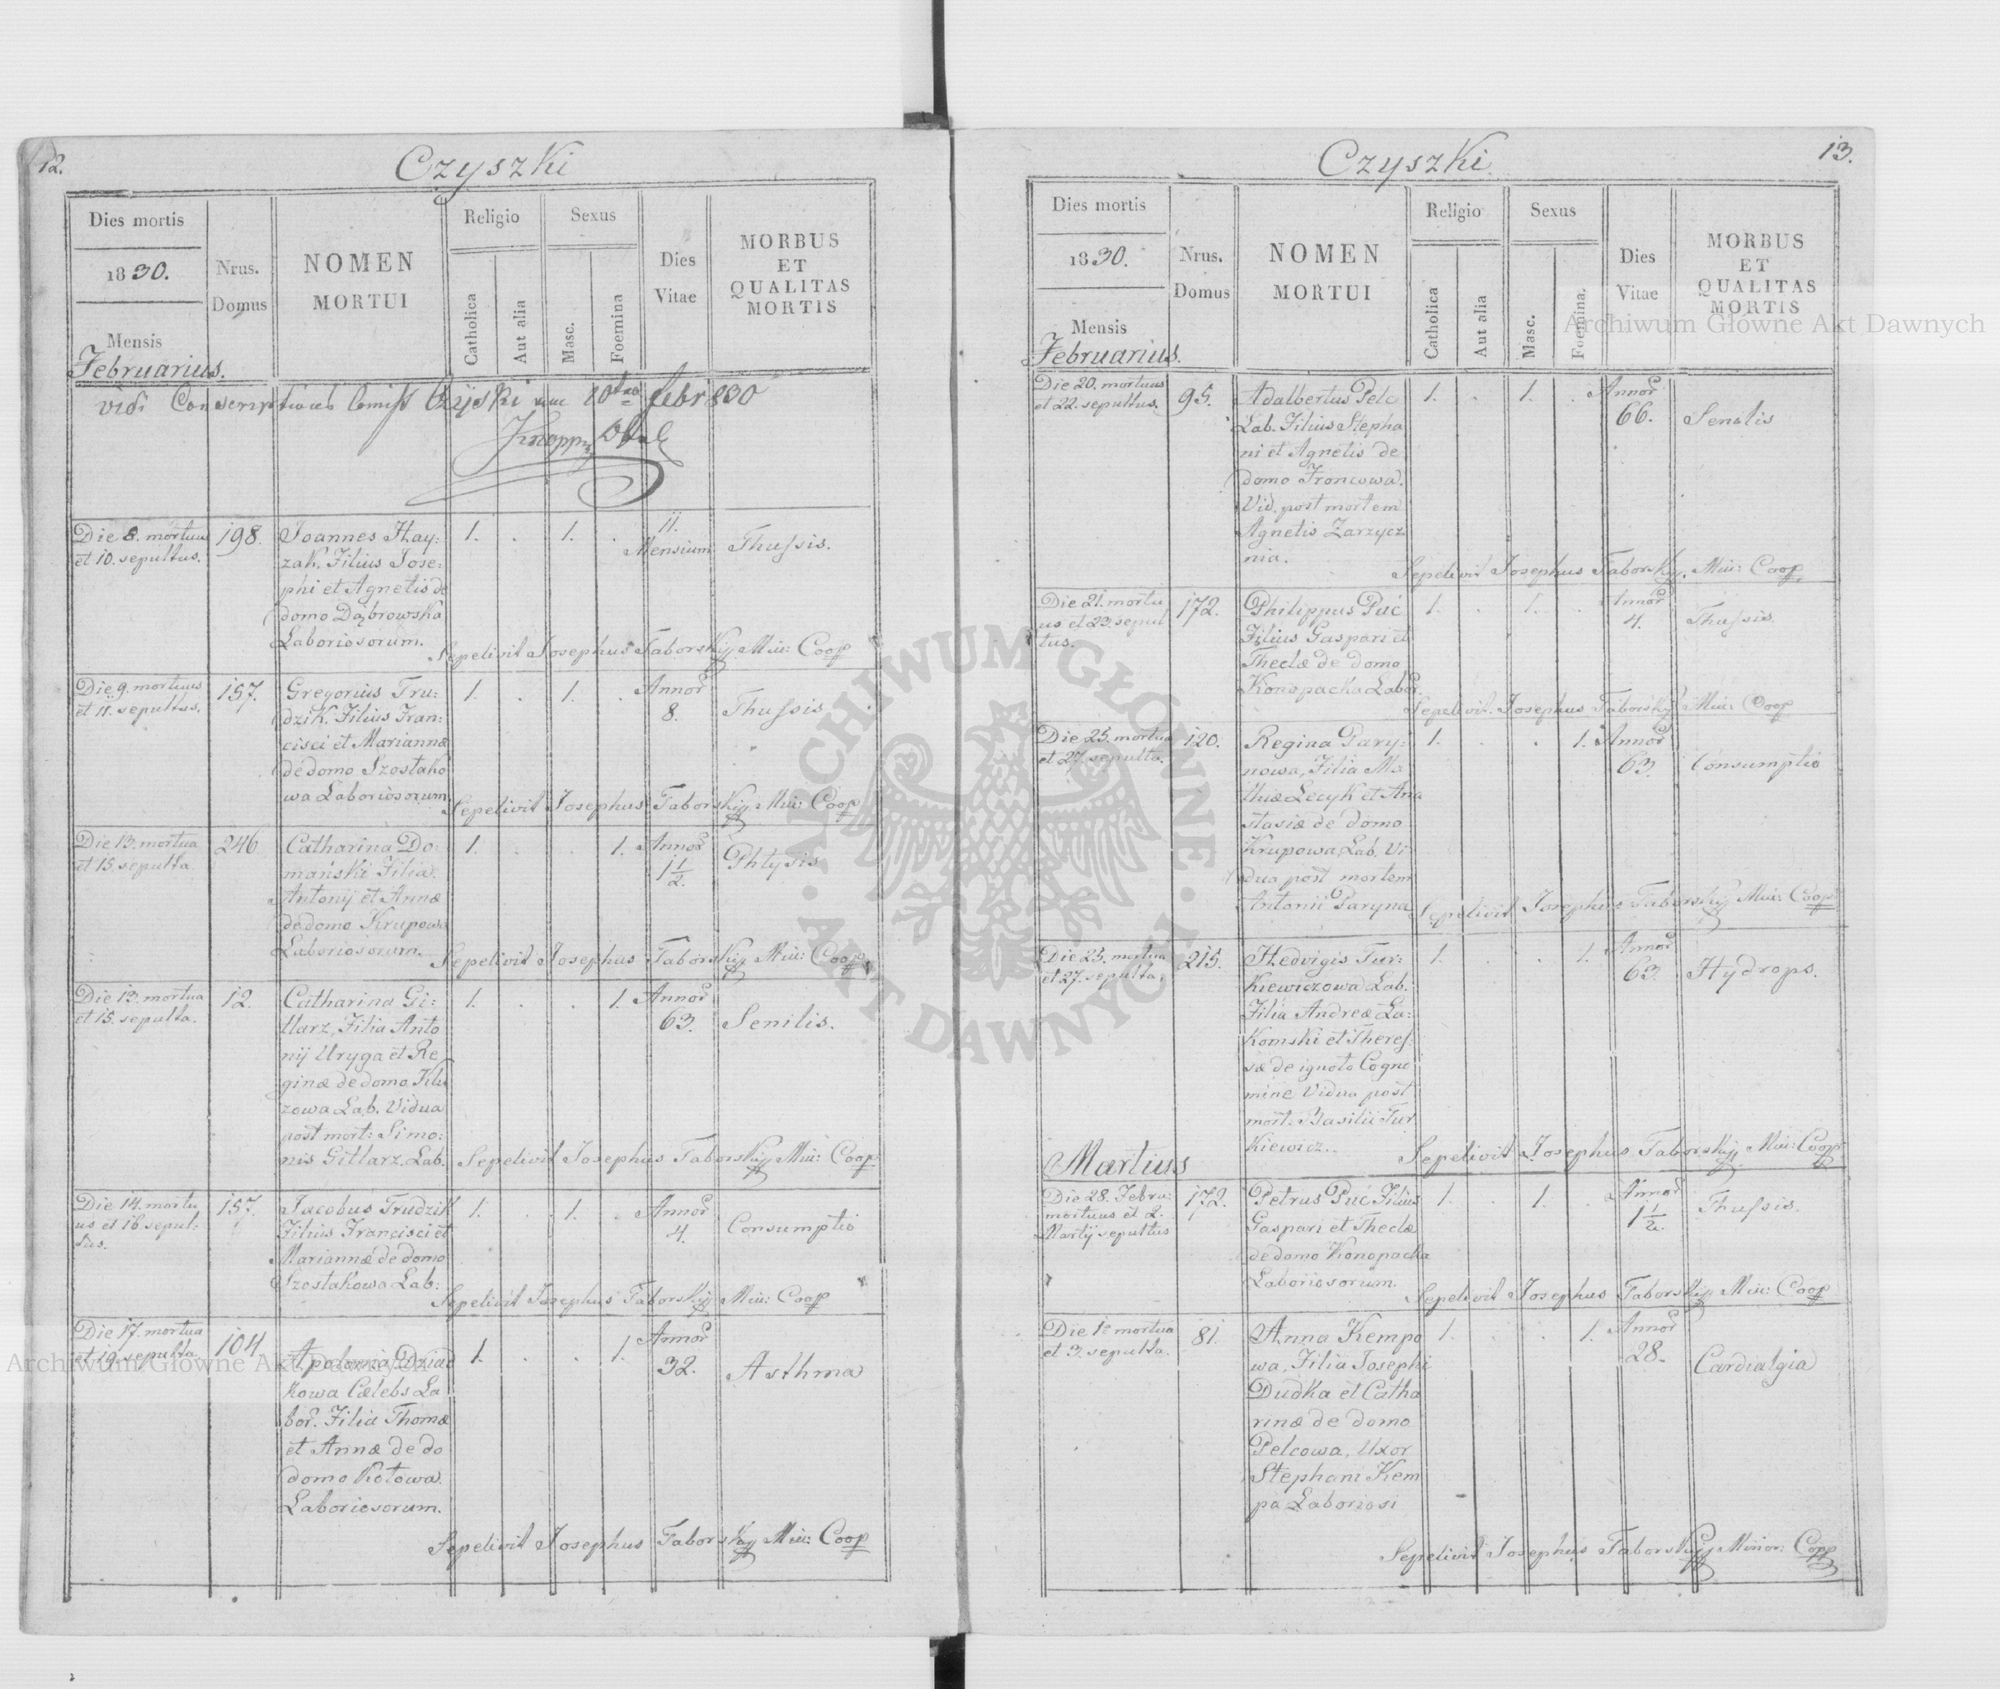 12.
Czyszki
Dies mortis
1830.
Mensis
Februarius.
Nrus.
Domus
NOMEN
MORTUI
Religio
Catholica
Aut alia
Sexus
Masc.
Foemina
Dies
Vitae
MORBUS
ET
QUALITAS
MORTIS
vidi Conscriptions Czyski 10 febr 830
Die 8. mortuus
et 10. sepultus.
198.
Joannes Hay:
zak. Filius Jose:
phi et Agnetis de
domo Dąbrowska
Laboriosorum.
1. . 1. .
11.
Mensium
Thussis.
Sepelivit Josephus Taborskij Min: Coop
Die 9. mortuus
et 11. sepultus.
157.
Gregorius Tru:
dzik. Filius Fran:
cisci et Mariannæ
de domo Szostako
wa Laboriosorum.
1. . 1. .
Annor
8.
Thussis
Sepelivit Josephus Taborskij Min: Coop
Die 13. mortua
et 15. sepulta.
246
Catharina Do:
mański Filia
Antonij et Annæ
de domo Krupowa
Laboriosorum.
1. . . 1.
Annor
1 1/2.
Phtysis
Sepelivit Josephus Taborskij Min: Coop
Die 13. mortua
et 15. sepulta.
12.
Catharina Gi:
tlarz, Filia Anto
nij Uryga et Re
ginæ de domo
zowa Lab. Vidua
post mort: Simo:
nis Gitlarz. Lab.
1. . . 1.
Annor
63.
Senilis.
Sepelivit Josephus Taborskij Min: Coop
Die 14. mortu
us et 16. sepul:
tus.
157.
Jacobus Trudzik
Filius Francisci et
Mariannæ de domo
Szostakowa Lab:
1. . 1. .
Annor
4.
Consumptio
Sepelivit Josephus Taborskij Min: Coop
Die 17. mortua
et 19. sepulta
104.
Apolonia Dziad
kowa Cælebs La
bor. Filia Thomæ
et Annæ de do
domo Kotowa
Laboriosorum.
1. . . 1.
Annor
32.
Asthma
Sepelivit Josephus Taborskij Min: Coop
13.
Czyszki.
Dies mortis
1830.
Mensis
Februarius.
Nrus.
Domus
NOMEN
MORTUI
Religio
Catholica
Aut alia
Sexus
Masc.
Foemina.
Dies
Vitae
MORBUS
ET
QUALITAS
MORTIS
Die 20. mortuus
et 22. sepultus.
95.
Adalbertus Pelc
Lab. Filius Stepha
ni et Agnetis de
domo Froncowa.
Vid. post mortem
Agnetis Zarzycz
nia.
1. . 1. .
Annor
66.
Senilis
Sepelivit Josephus Taborskij. Min: Coop
Die 21. mortu
us et 23. sepul
tus.
172.
Philippus Puć
Filius Gaspari et
Theclæ de domo
Konopacka Labor.
1. . 1. .
Annor
4.
Thussis.
Sepelivit. Josephus Taborskij Min: Coop
Die 25. mortua
et 27. sepulta.
120.
Regina Pary:
nowa, Filia Ma
thiæ Lecyk et Ana
stasiæ de domo
Krupowa Lab. Vi
dua post mortem
Antonii Paryna
1. . . 1.
Annor
63.
Consumptio
Sepelivit Josephus Taborskij Min: Coop
Die 25. mortua
et 27. sepulta.
215.
Hedvigis Tur:
kiewiczowa Lab.
Filia Andreæ La:
komski et Theres:
iæ de ignoto Cogno
mine Vidua post
mort. Basilii Tur
kiewicz.
1. . . 1.
Annor
63.
Hydrops.
Sepelivit Josephus Taborskij Min: Coop
Martius
Die 28. Febru:
mortuus et 2.
Martij sepultus
172.
Petrus Puć Filius
Gaspari et Theclæ
de domo Konopacka
Laboriosorum.
1. . 1. .
Annor
1 1/2.
Thussis.
Sepelivit Josephus Taborskij Min: Coop
Die 1e mortua
et 3. sepulta.
81.
Anna Kempo
wa, Filia Josephi
Dudka et Catha
rinæ de domo
Pelcowa, Uxor
Stephani Kem
pa Laboriosi
1. . . 1.
Annor
28.
Cardialgia
Sepelivit Josephus Taborskij Minor: Coop
Archiwum Główne Akt Dawnych
Archiwum Główne Akt Dawnych
ARCHIWUM GŁÓWNE · AKT DAWNYCH ·